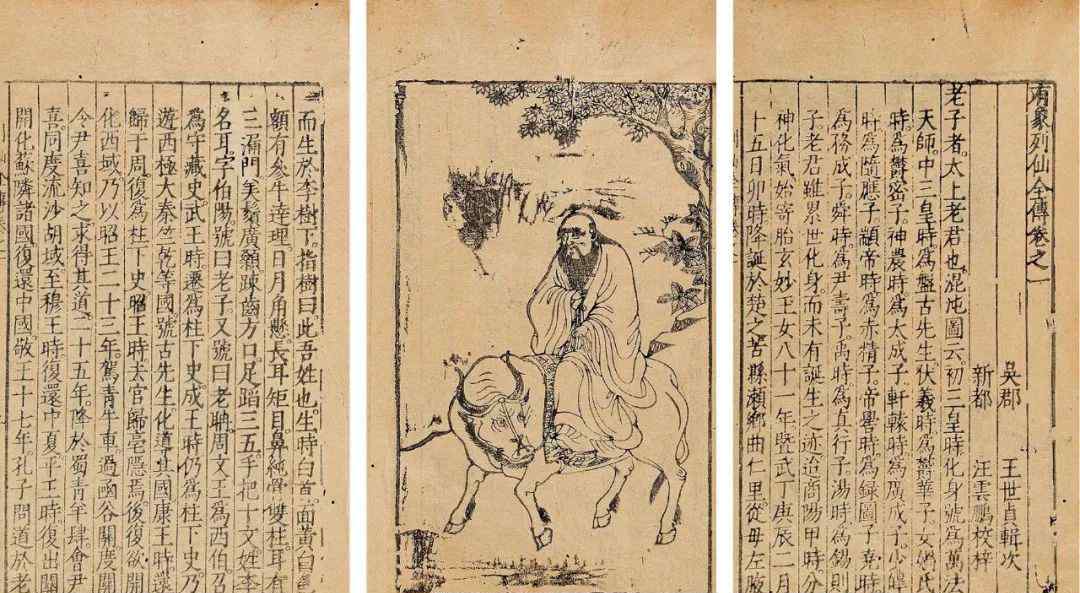 有象列仙全傳卷之一
吳郡 王世貞輯次
新都 汪雲鵬校梓
老子者。太上老君也。混沌圖云。初三皇時化身號為萬法
天師。中三皇時為盤古先生。伏羲時為鬱華子。女媧氏
時。為鬱密子。神農時為大成子。軒轅時為廣成子。少皡
時為隨應子。顓帝時為赤精子。帝嚳時。為錄圖子。堯時。
為務成子。舜時。為尹壽子。禹時為真行子。湯時為錫則
子。老君雖累世化身。而未有誕生之迹。迨商陽甲時。分
神化氣。始寄胎玄妙王女八十一年。暨武丁庚辰二月
十五日卯時。降誕於楚之苦縣瀨鄉曲仁里。從母左腋
而生於李樹下。指樹曰。此吾姓也。生時白首。面黃白色
額有參牛達理。日月角懸。長耳矩目。鼻純骨雙柱。耳有
三漏門。美鬚廣顙。疎齒方口。足蹈三五。手把十文。姓李
名耳。字伯陽。號曰老子。又號曰老聃。周文王為西伯。召
為守藏史。武王時。遷為柱下史。成王時。仍為柱下史。乃
遊西極大秦竺乾等國。號古先生。化導其國。康王時。還
歸于周。復為柱下史。昭王時。去官歸亳隱焉。後復欲開
化西域。乃以昭王二十三年。駕青牛車。過函谷關。度關
令尹喜知之。求得其道。二十五年。降於蜀青羊肆。會尹
喜。同度流沙胡域。至穆王時。復還中夏。平王時。復出關
開化蘇隣諸國。復還中國。敬王十七年。孔子問道於老